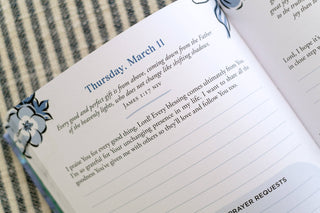 Thursday, March 11
Every good and perfect gift is from above, coming down from the Father
of the heavenly lights, who does not change like shifting shadows.
JAMES 1:17 NIV
I praise You for every good thing, Lord! Every blessing comes ultimately from You.
I'm so grateful for Your unchanging presence in my life. I want to share all the
goodness You've given me with others so they'll love and follow You too.
PRAYER REQUESTS
to the
joy than
Lord, I hope it's
in close step w